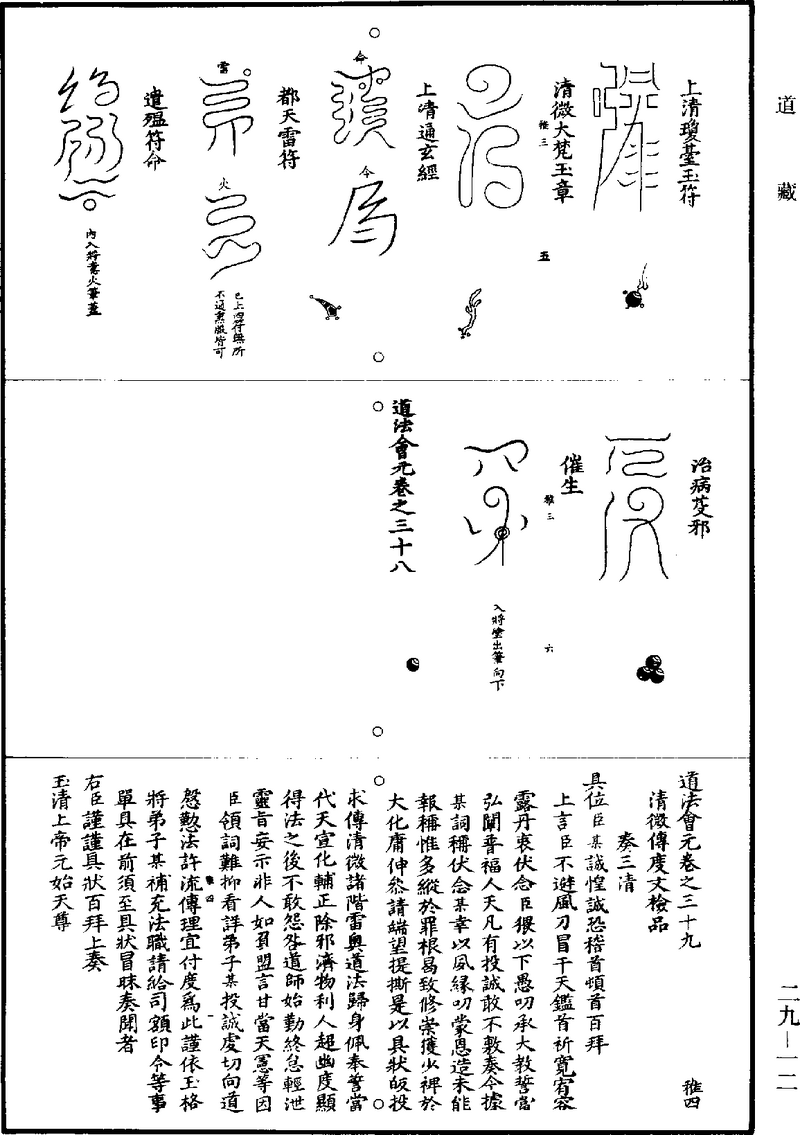 道藏
上清瓊臺玉符
清微大梵玉章
稚三
五
上清通玄經
命
令
都天雷符
雷
火
已上四符無所
不通熏服皆可
遣瘟符命
內入將意火筆蓋
治病芟邪
催生
稚三
六
入將塗出筆向下
道法會元卷之三十八
道法會元卷之三十九
稚四
清微傳度文檢品
奏三清
具位臣某誠惶誠恐稽首頓首百拜
上言臣不避風刀冒干天鑑首祈寬宥容
露丹衷伏念臣猥以下愚叨承大教誓當
弘闡普福人天凡有投誠敢不敷奏今據
某詞稱伏念某幸以夙緣叨蒙恩造未能
報稱惟多縱於罪根曷致修崇獲少裨於
大化庸伸叅請端望提撕是以具狀皈投
求傳清微諸階雷奧道法歸身佩奉誓當
代天宣化輔正除邪濟物利人超幽度顯
得法之後不敢怨咎道師始勤終怠輕泄
靈旨妄示非人如負盟言甘當天憲等因
臣領詞難抑看詳弟子某投誠虔切向道
慇懃法許流傳理宜付度為此謹依玉格
稚四
一
將弟子某補充法職請給司額印令等事
單具在前須至具狀冒昧奏聞者
右臣謹謹具狀百拜上奏
玉清上帝元始天尊
二九—一二